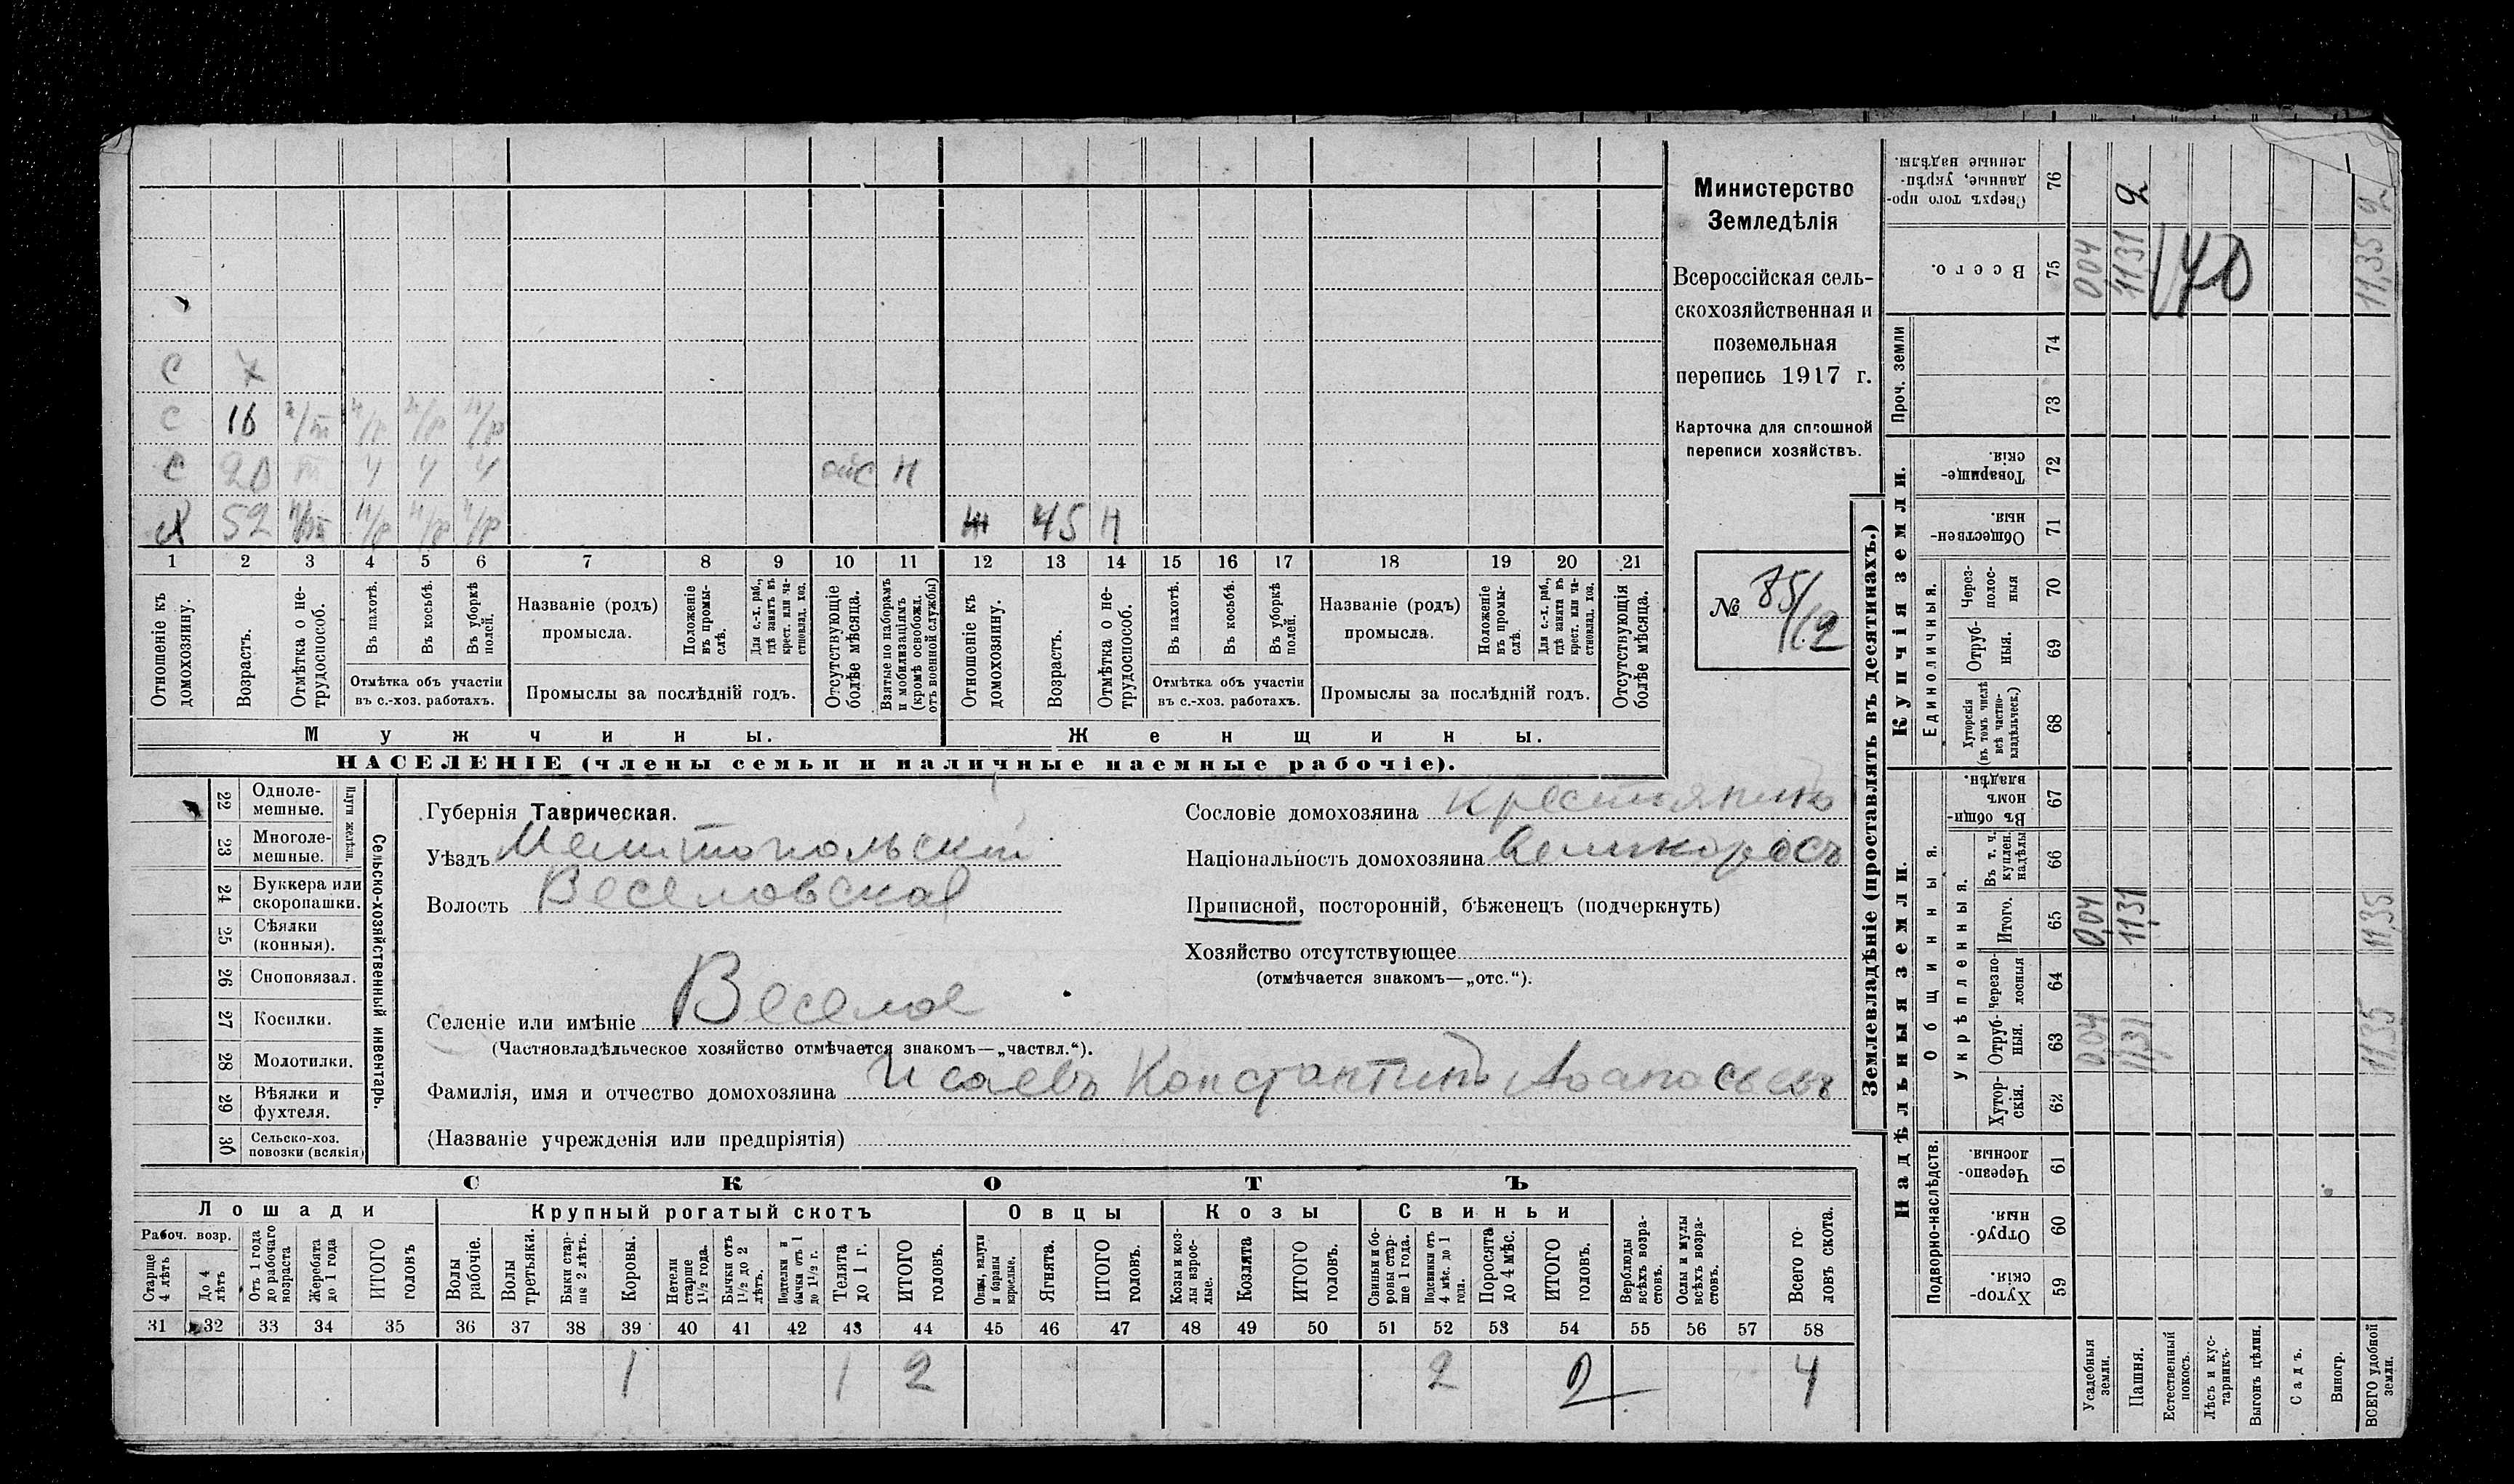 С 7
С 16 н/т ч/р ч/р ч/р
С 20 т ч ч ч отс н
Х 52 н/т ч/р ч/р ч/р Ж 45 н
1 2 3 4 5 6 7 8 9 10 11 12 13 14 15 16 17 18 19 20 21
Отношеніе къ домохозяину.
Возрастъ.
Отмѣтка о не-трудоспособ.
Въ пахотѣ.
Въ косьбѣ.
Въ уборкѣ полей.
Отмѣтка объ участіи
въ с.-хоз. работахъ.
Названіе (родъ)
промысла.
Положеніе въ промы-слѣ.
Для с.-х. раб., гдѣ занятъ въ крест. или ча-стновлад. хоз.
Промыслы за послѣдній годъ.
Отсутствующіе болѣе мѣсяца.
Взятые по наборамъ и мобилизаціямъ (кромѣ освобожд. отъ военной службы)
Отношеніе къ домохозяину.
Возрастъ.
Отмѣтка о не-трудоспособ.
Въ пахотѣ.
Въ косьбѣ.
Въ уборкѣ полей.
Отмѣтка объ участіи
въ с.-хоз. работахъ.
Названіе (родъ)
промысла.
Положеніе въ промы-слѣ.
Для с.-х. раб., гдѣ занята въ крест. или ча-стновлад. хоз.
Промыслы за послѣдній годъ.
Отсутствующія болѣе мѣсяца.
Мужчины.
Женщины.
НАСЕЛЕНІЕ (члены семьи и наличные наемные рабочіе).
Министерство
Земледѣлія
Всероссійская сель-
скохозяйственная и
поземельная
перепись 1917 г.
Карточка для сплошной
переписи хозяйствъ.
№ 85/12
22 Одноле-мешные.
23 Многоле-мешные.
Плуги желѣзн.
24 Буккера или скоропашки.
25 Сѣялки (конныя).
26 Сноповязал.
27 Косилки.
28 Молотилки.
29 Вѣялки и фухтеля.
30 Сельско-хоз. повозки (всякія)
Сельско-хозяйственный инвентарь.
Губернія Таврическая.
Уѣздъ Мелитопольскій
Волость Веселовская
Селеніе или имѣніе Веселое
(Частновладѣльческое хозяйство отмѣчается знакомъ—„частвл.“).
Фамилія, имя и отчество домохозяина Исаевъ Константинъ Афанасьевъ
(Названіе учрежденія или предпріятія)
Сословіе домохозяина крестьянинъ
Національность домохозяина великоросъ
Приписной, посторонній, бѣженецъ (подчеркнуть)
Хозяйство отсутствующее
(отмѣчается знакомъ—„отс.“).
СКОТЪ
Лошади
Рабоч. возр.
Старше 4 лѣтъ
До 4 лѣтъ
Отъ 1 года до рабочаго возраста
Жеребята до 1 года
ИТОГО головъ
Крупный рогатый скотъ
Волы рабочіе.
Волы третьяки.
Быки стар-ше 2 лѣтъ.
Коровы.
Нетели старше 1½ года.
Бычки отъ 1½ до 2 лѣтъ.
Подтелки и бычки отъ 1 до 1½ г.
Телята до 1 г.
ИТОГО головъ.
Овцы
Овцы, валухи и бараны взрослые.
Ягнята.
ИТОГО головъ.
Козы
Козы и коз-лы взрос-лые.
Козлята
ИТОГО головъ.
Свиньи
Свиньи и бо-ровы стар-ше 1 года.
Подсвинки отъ 4 мѣс. до 1 года.
Поросята до 4 мѣс.
ИТОГО головъ.
Верблюды всѣхъ возра-стовъ.
Ослы и мулы всѣхъ возра-стовъ.
Всего го-ловъ скота.
31 32 33 34 35 36 37 38 39 40 41 42 43 44 45 46 47 48 49 50 51 52 53 54 55 56 57 58
1 1 2 2 2 4
Землевладѣніе (проставлять въ десятинахъ.)
Сверхъ того про-данные, укрѣп-ленные надѣлы. 76 2 2
Всего. 75 0,04 11,31 11,35
140
Проч. земли
74
73
Купчія земли.
Товарище-скія. 72
Обществен-ныя. 71
Единоличныя.
Через-полос-ныя 70
Отруб-ныя. 69
Хуторскія (въ томъ числѣ всѣ частно-владѣльческ.) 68
Надѣльныя земли.
Общинныя.
Въ общи-номъ владѣн. 67
Укрѣпленныя.
Въ т. ч. куплен. надѣлы 66
Итого. 65 0,04 11,31 11,35
Черезпо-лосныя 64
Отруб-ныя. 63 0,04 11,31 11,35
Хутор-скія. 62
Подворно-наслѣдств.
Черезпо-лосныя. 61
Отруб-ныя. 60
Хутор-скія. 59
Усадебныя земли.
Пашня.
Естественный покосъ.
Лѣсъ и кус-тарникъ.
Выгонъ цѣлин.
Садъ.
Виногр.
ВСЕГО удобной земли.